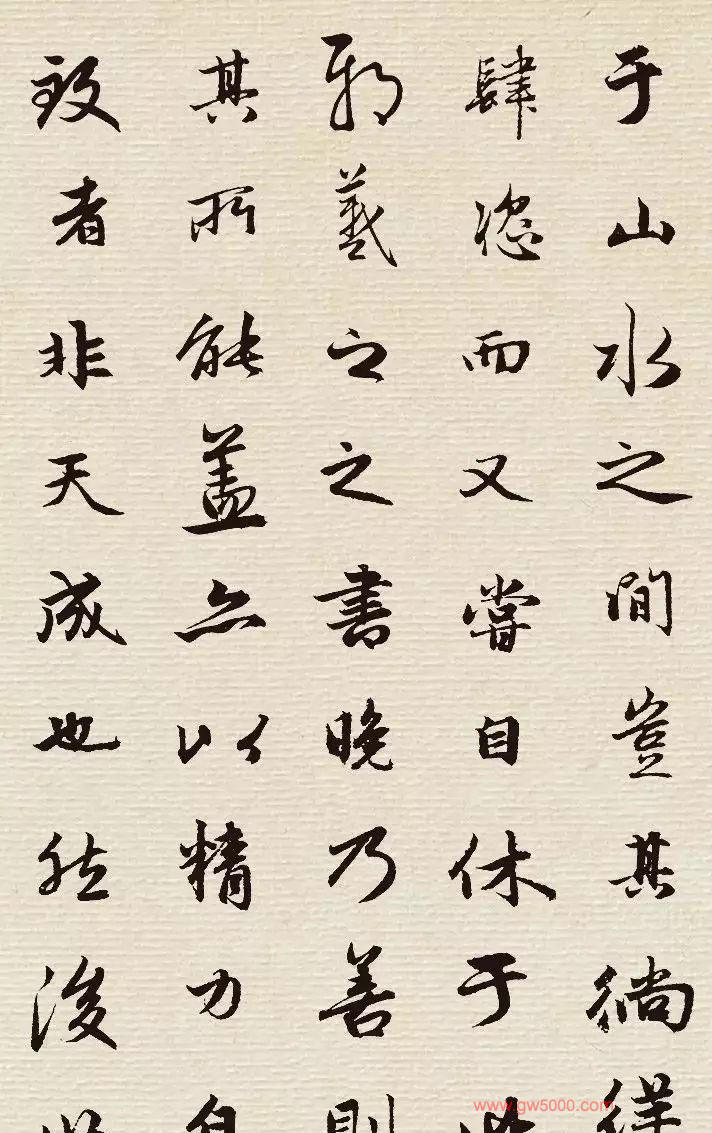 于山水之間豈其徜徉
肆恣而又嘗自休于此
邪羲之之書晚乃善則
其所能蓋亦以精力自
致者非天成也然後
www.gw5000.com